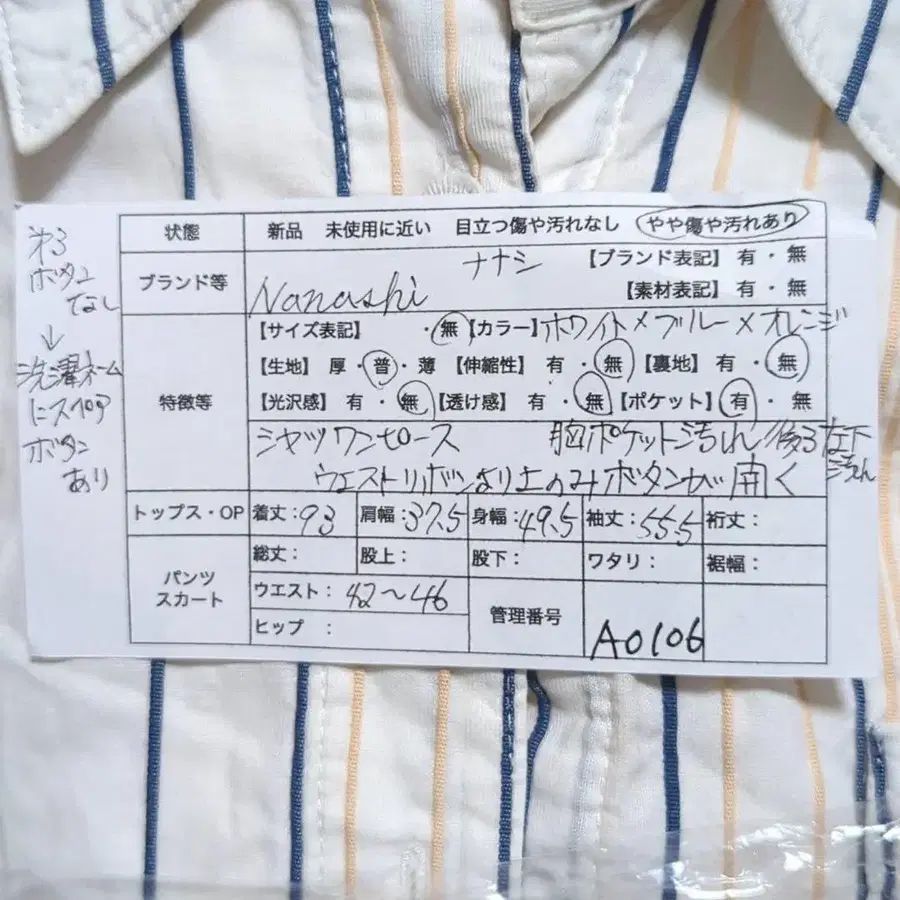 状態 新品 未使用に近い 目立つ傷や汚れなし やや傷や汚れあり
ブランド等 Nanashi ナナシ 【ブランド表記】 有・無
【素材表記】 有・無
特徴等 【サイズ表記】 ・無 【カラー】ホワイト×ブルー×オレンジ
【生地】 厚・普・薄 【伸縮性】 有・無 【裏地】 有・無
【光沢感】 有・無 【透け感】 有・無 【ポケット】 有・無
シャツワンピース 胸ポケット汚れ/後ろ左下汚れ
ウエストリボンより上のみボタンが開く
トップス・OP 着丈:93 肩幅:37.5 身幅:49.5 袖丈:55.5 裄丈:
パンツ スカート 総丈: 股上: 股下: ワタリ: 裾幅:
ウエスト:42〜46 管理番号 A0106
ヒップ :
ボタン
なし
↓
洗濯ネーム
にスペア
ボタン
あり